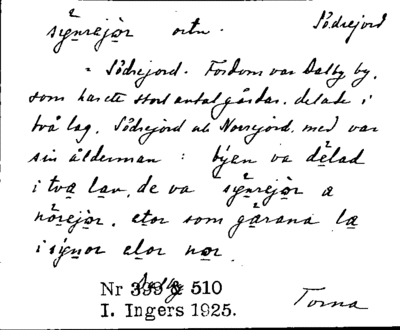 sy̆nrejo̤r ortn. Södrejord
= Södrejord. Fordom var Dalby by,
som hade stort antal gårdar, delad i
två lag, Södrejord och Norrejord, med var
sin ålderman : býen va dèlad
i två lav, de va sy̆nrejo̤r a
nørejo̤r, etor som gårana lå
i synor elor nor.
Dalby
Nr 399 & 510
I. Ingers 1925.
Torna